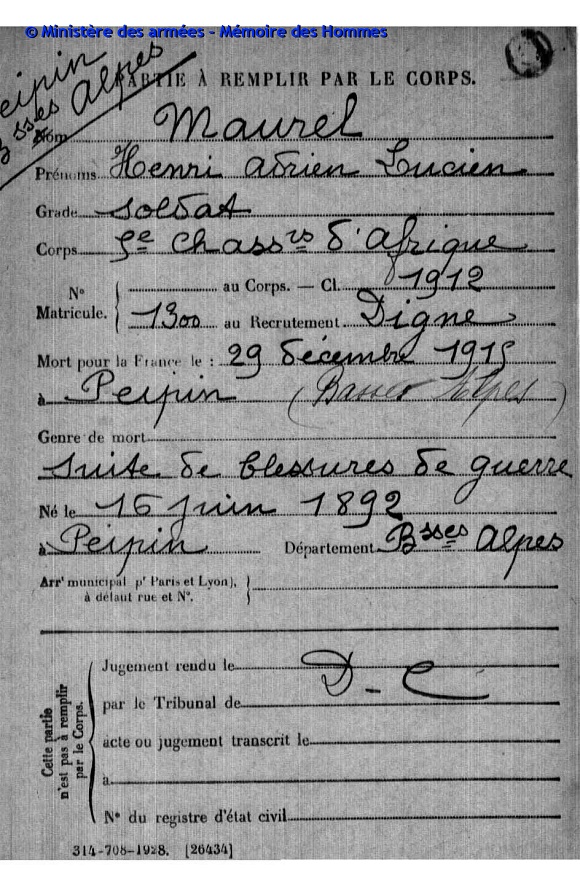 © Ministère des armées - Mémoire des Hommes
Peipin
Bsses Alpes
PARTIE À REMPLIR PAR LE CORPS.
Nom Maurel
Prénoms Henri Adrien Lucien
Grade Soldat
Corps 5e Chassrs d'Afrique
N° Matricule. { au Corps. — Cl. 1912
1300 au Recrutement Digne
Mort pour la France le : 29 décembre 1915
à Peipin (Basses Alpes)
Genre de mort
Suite de blessures de guerre
Né le 16 juin 1892
à Peipin Département Bsses Alpes
Arrt municipal pr Paris et Lyon), }
à défaut rue et N°.
Cette partie
n'est pas à remplir
par le Corps.
Jugement rendu le
D - C
par le Tribunal de
acte ou jugement transcrit le
à
N° du registre d'état civil
314-708-1928. [26434]